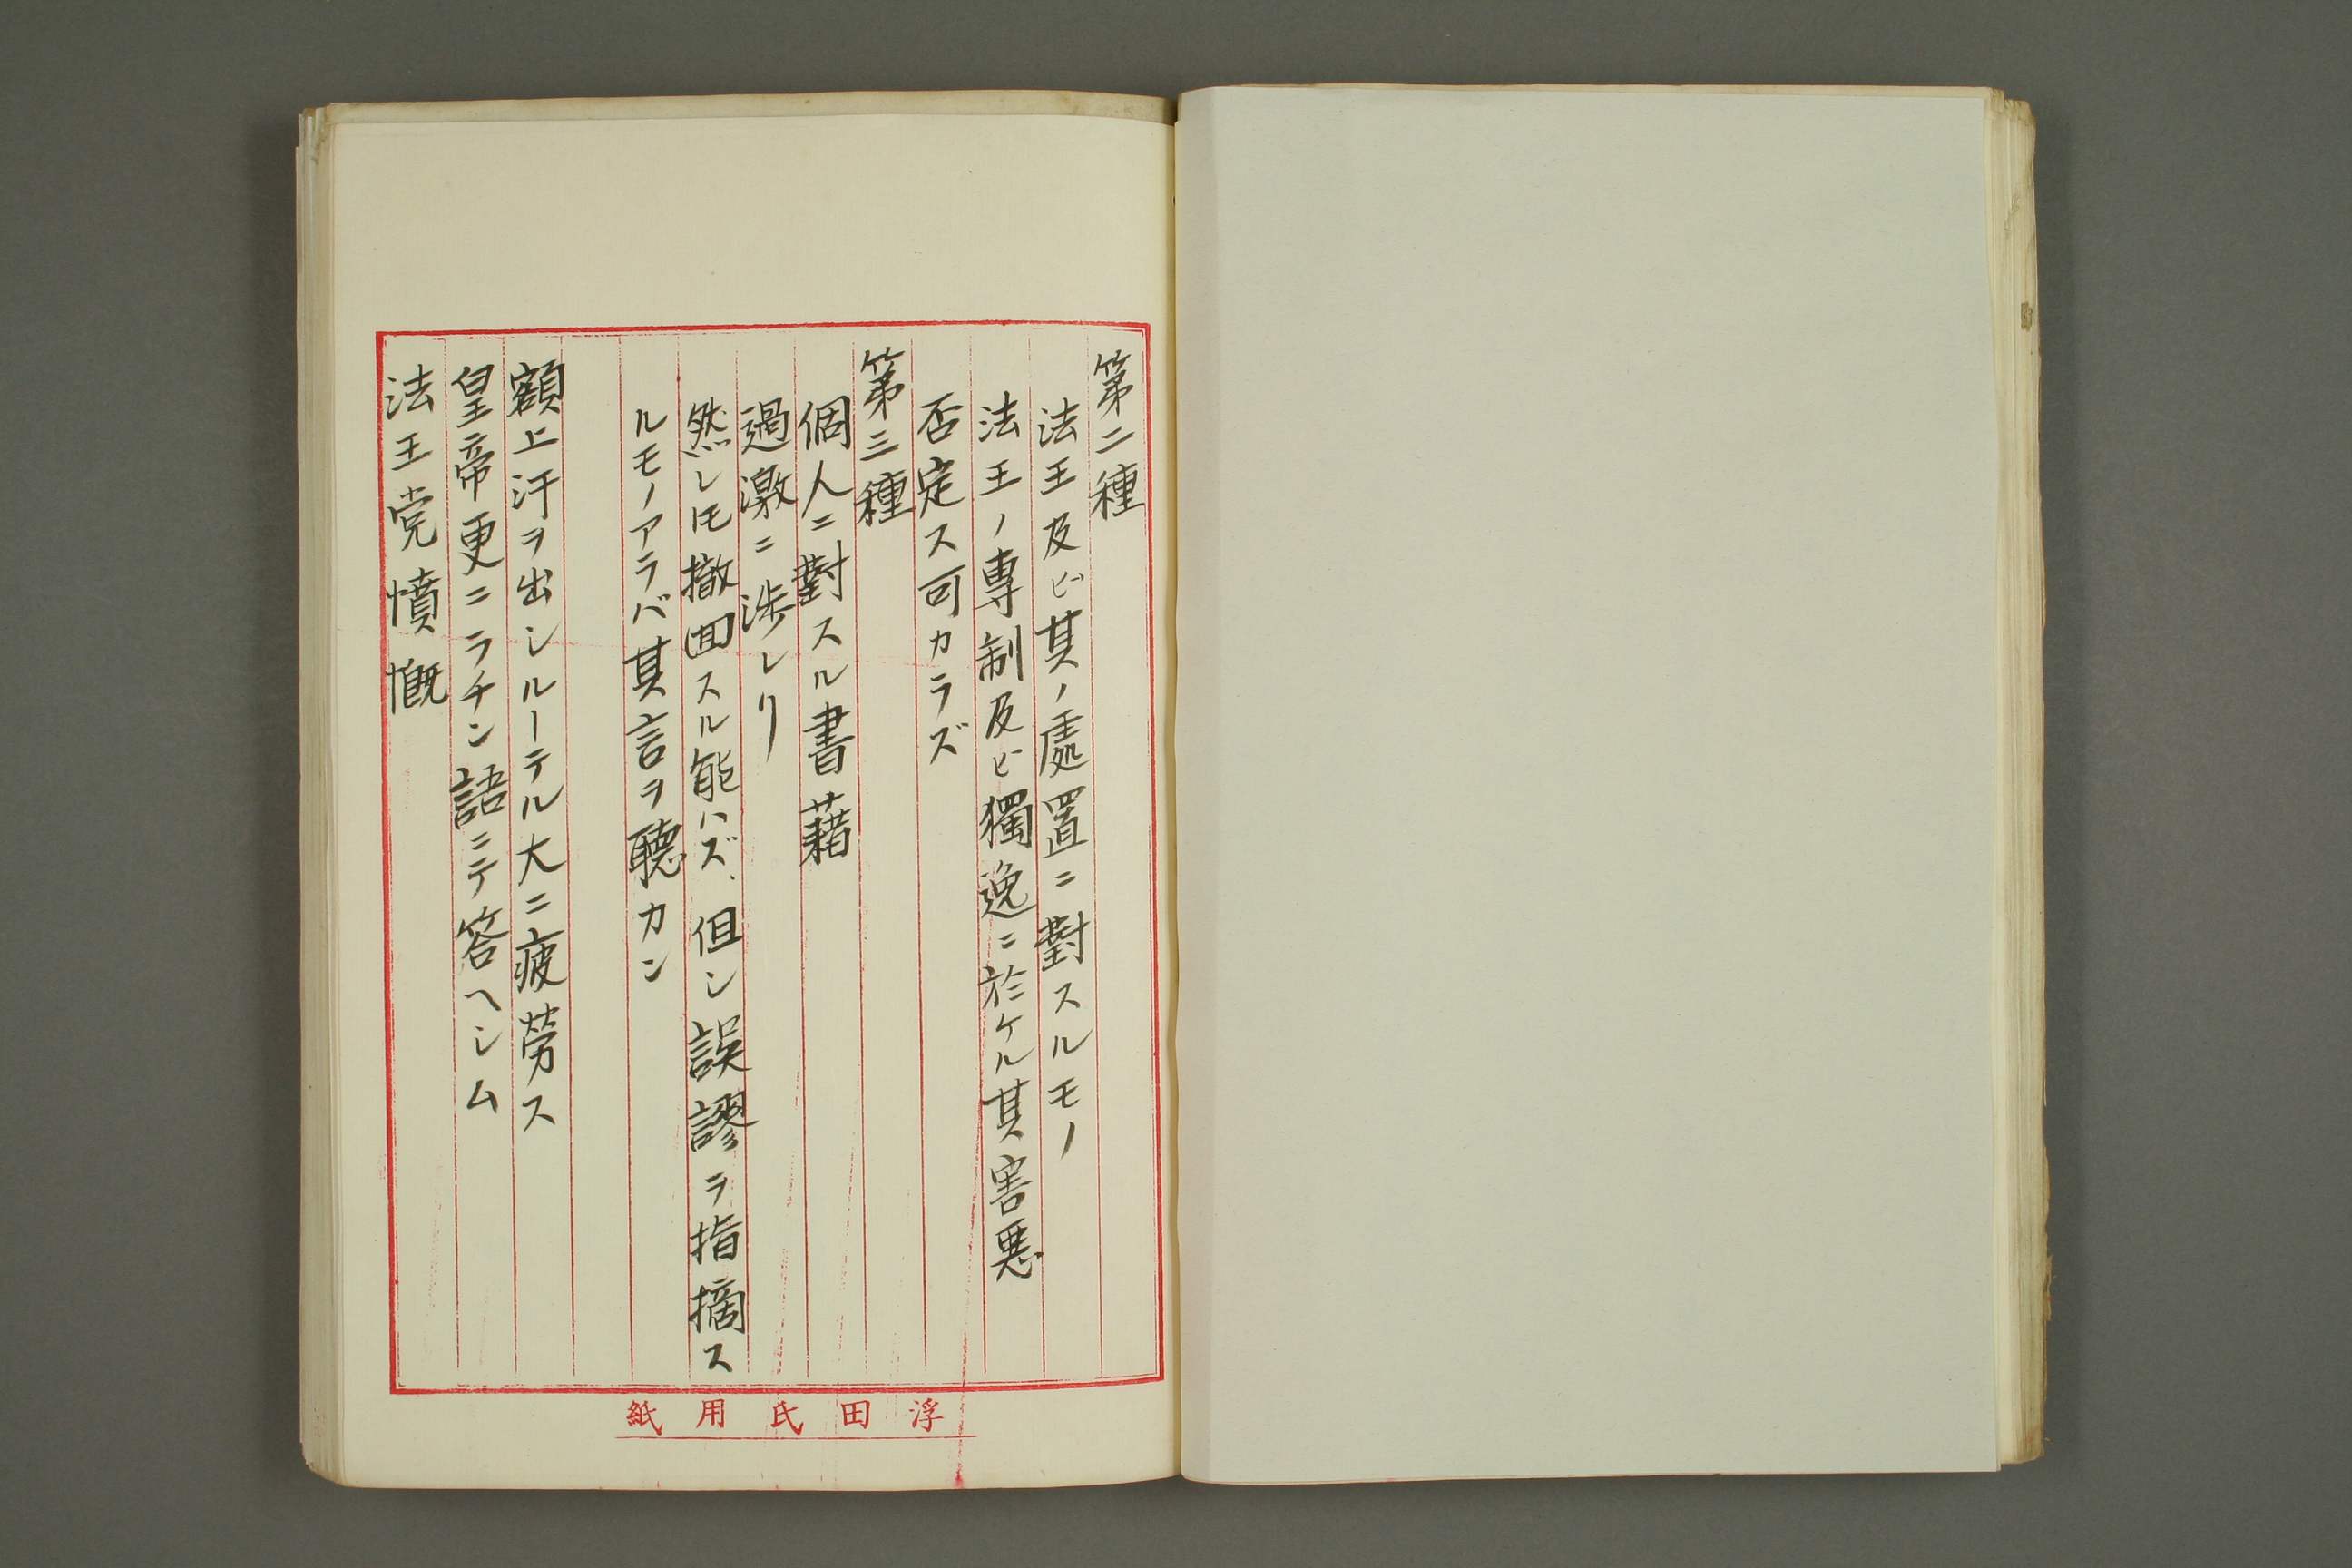 第二種
法王及ビ其ノ處置ニ對スルモノ
法王ノ専制及ビ獨逸ニ於ケル其害悪
否定ス可カラズ
第三種
個人ニ對スル書藉
過激ニ渉レリ
然レ𪜈撤回スル能ハズ、但シ誤謬ヲ指摘ス
ルモノアラバ其言ヲ聴カン
額上汗ヲ出シルーテル大ニ疲労ス
皇帝更ニラテン語ニテ答ヘシム
法王党憤慨
浮田氏用紙